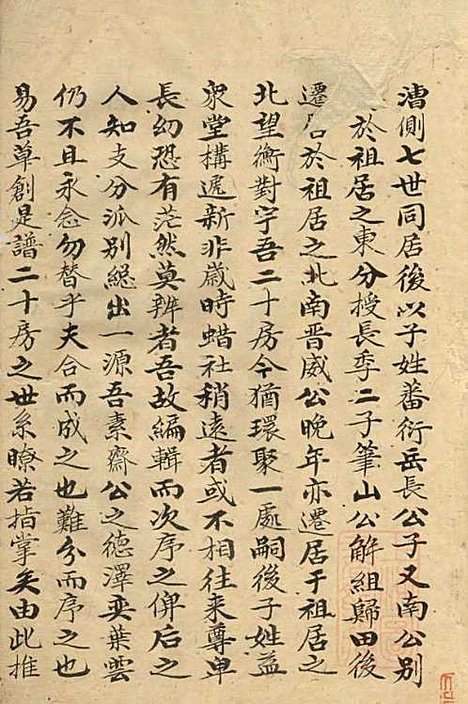 漕側七世同居後以子姓蕃衍岳長公子又南公別
於祖居之東分授長季二子筆山公解組歸田後
遷居於祖居之北南晋威公晚年亦遷居于祖居之
北望衡對宇吾二十房今猶環聚一處嗣後子姓益
衆堂構遞新非歲時蜡社稍遠者或不相往来尊卑
長幼恐有茫然莫辨者吾故編輯而次序之俾后之
人知支分派別緫出一源吾素齋公之德澤奕葉雲
仍不且永念勿替乎夫合而成之也難分而序之也
易吾草創是譜二十房之世系瞭若指掌矣由此推